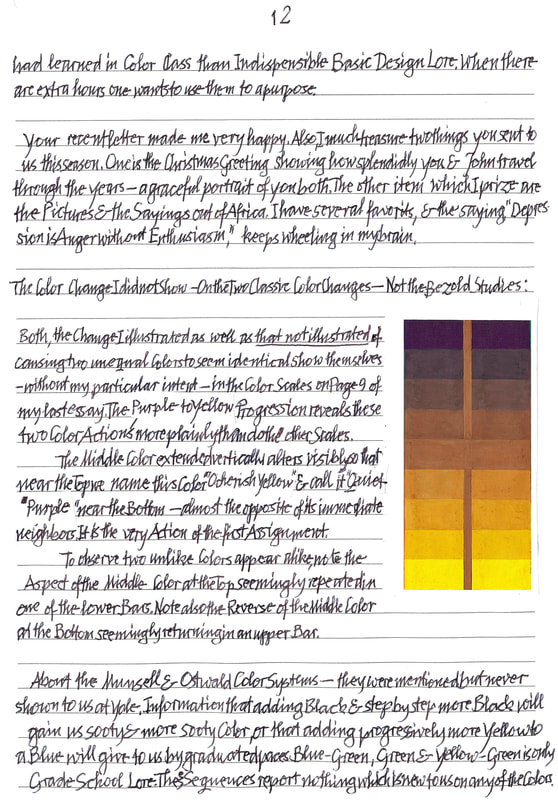 12
had learned in Color Class than Indispensible Basic Design Lore. When there
are extra hours one wants to use them to a purpose.
Your recent letter made me very happy. Also, I much treasure two things you sent to
us this season. One is the Christmas Greeting showing how splendidly you & John travel
through the years – a graceful portrait of you both. The other item which I prize are
the Pictures & the Sayings out of Africa. I have several favorits, & the saying "Depres-
sion is Anger without Enthusiasm," keeps wheeling in my brain.
The Color Change I did not Show – On the Two Classic Color Changes – Not the Bezold Studies:
Both, the Change I illustrated as well as that not illustrated of
causing two unequal Colors to seem identical show themselves
– without my particular intent – in the Color Scales on Page 9 of
my last essay. The Purple to Yellow Progression reveals those
two Color Actions more plainly than do the other Scales.
The Middle Color extended vertically alters visibly so that
near the Top we name this Color "Ocherish Yellow" & call it "Quiet
Purple" near the Bottom – almost the opposite of its immediate
neighbors. It is the very Action of the first Assignment.
To observe two unlike Colors appear alike, note the
Aspect of the Middle Color at the Top seemingly repeated in
one of the lower Bars. Note also the Reverse of the Middle Color
at the Bottom seemingly returning in an upper Bar.
About the Munsell & Ostwald Color Systems – they were mentioned but never
shown to us at Yale. Information that adding Black & step by step more Black will
gain us sooty & more sooty Color, or that adding progressively more Yellow to
a Blue will give to us by graduated paces Blue-Green, Green & Yellow-Green is only
Grade-School Lore. These Sequences report nothing which is new to us on any of the Colors.